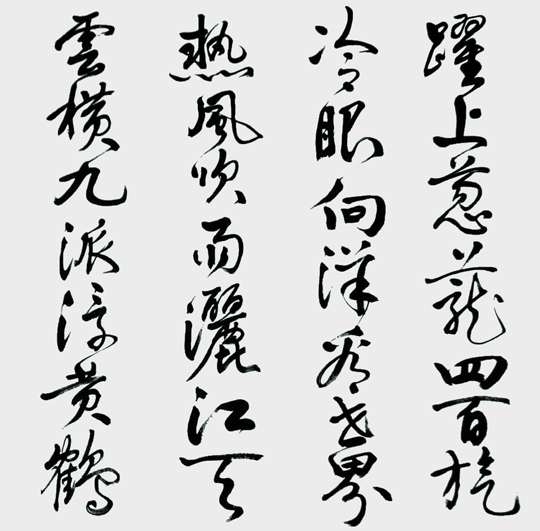 躍上葱蘢四百旋
冷眼向洋看世界
熱風吹雨灑江天
雲横九派浮黄鶴